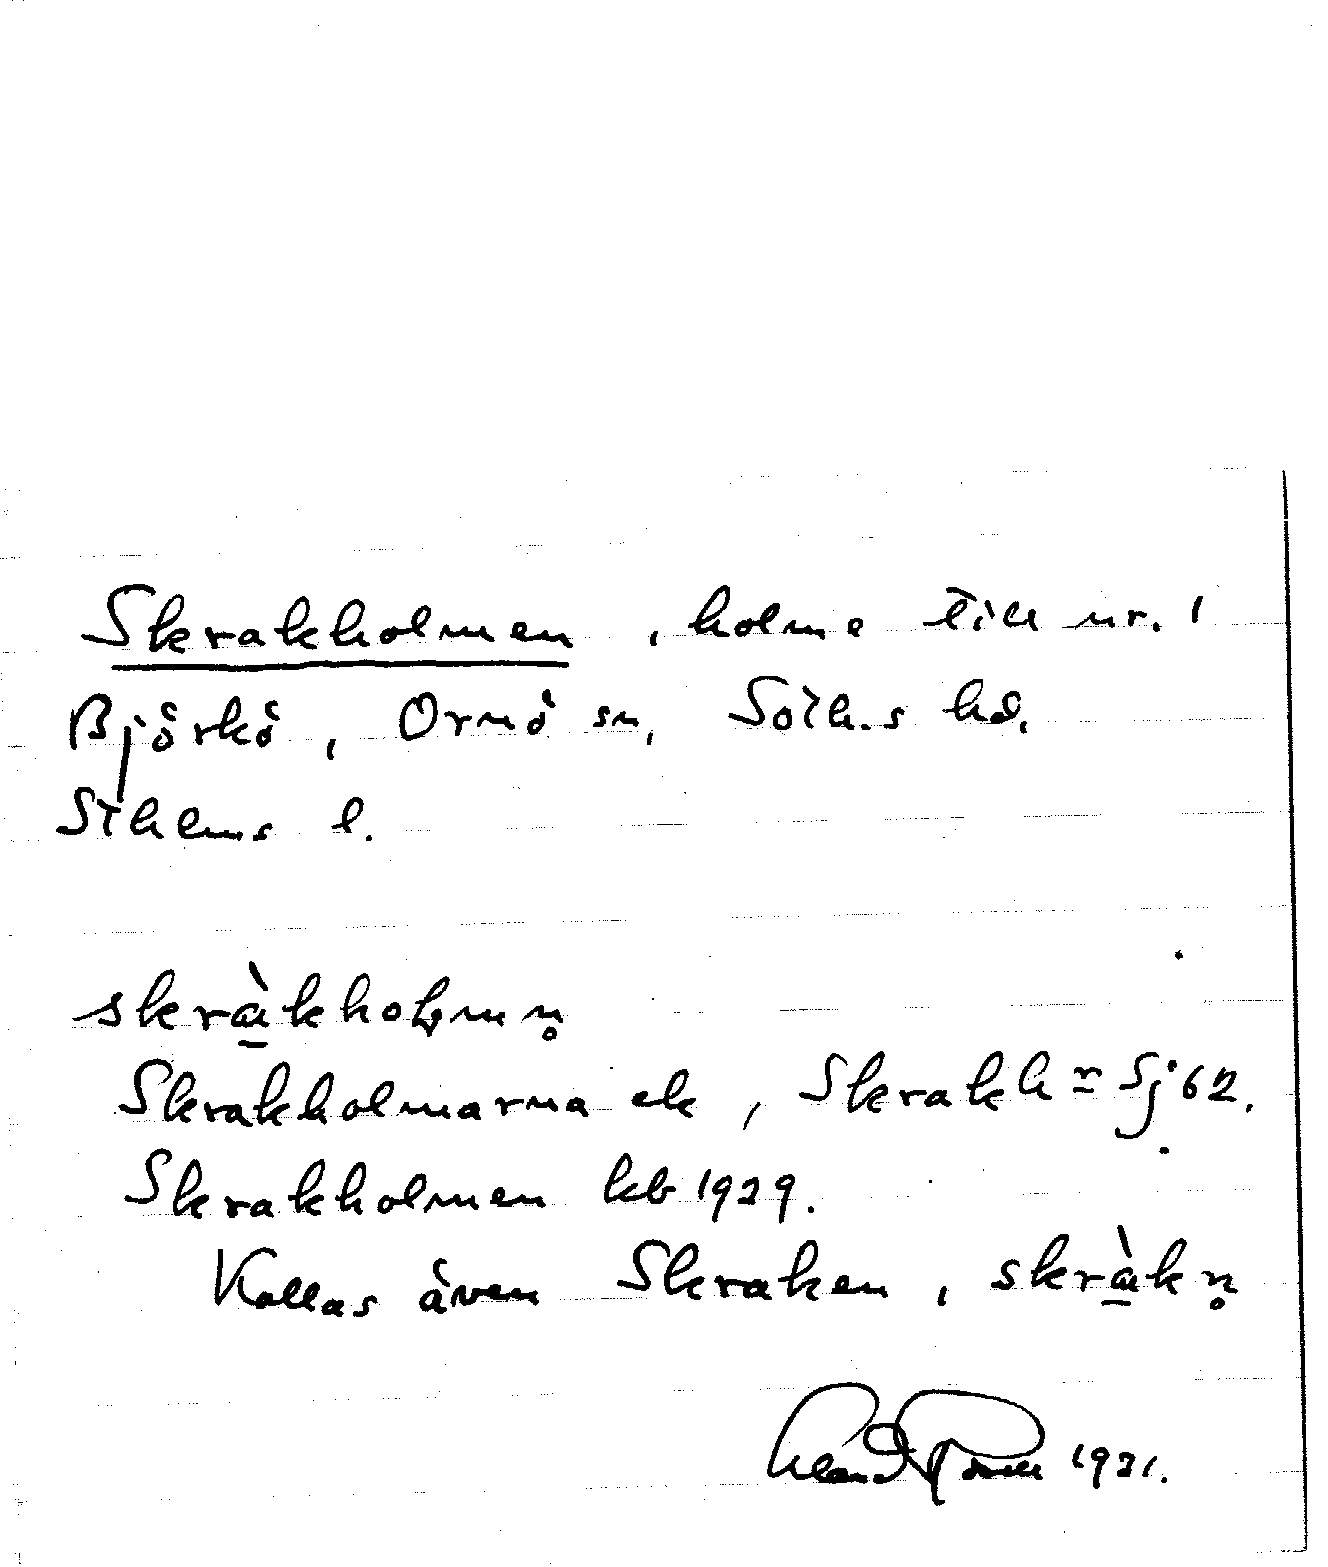 Skrakholmen, holme till nr. 1
Björkö, Ornö sn, Soth.s hd.
Sthlms l.
skràkhoɭmn̥
Skrakholmarna ek, Skrakh= Sj 62.
Skrakholmen kb 1929.
Kallas även Skraken, skràkn̥
1931.